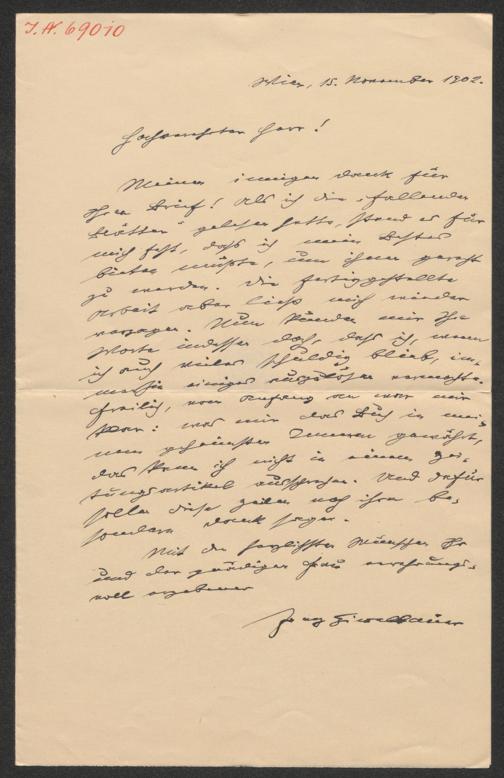 J.N. 69010
Wien, 15. November 1902.
Hochverehrter Herr!
Meinen innigen Dank für
Ihren Brief! Als ich die „fallenden
Blätter" gelesen hatte, stand es für
mich fest, daß ich mein Bestes
bieten müßte, um ihnen gerecht
zu werden. Die fertiggestellte
Arbeit aber ließ mich wieder
verzagen. Nun künden mir Ihre
Worte indessen doch, daß ich, wenn
ich auch vieles schuldig blieb, im-
merhin einiges auszulösen vermochte.
Freilich, von Anfang an war mir
klar: was mir das Buch in mei-
nem geheimsten Inneren gewährt,
das kann ich nicht in einem Zei-
tungsartikel aussprechen. Und dafür
sollen diese Zeilen noch ihren be-
sonderen Dank sagen.
Mit den herzlichsten Wünschen Ihr
und der gnädigen Frau verehrungs-
voll ergebener